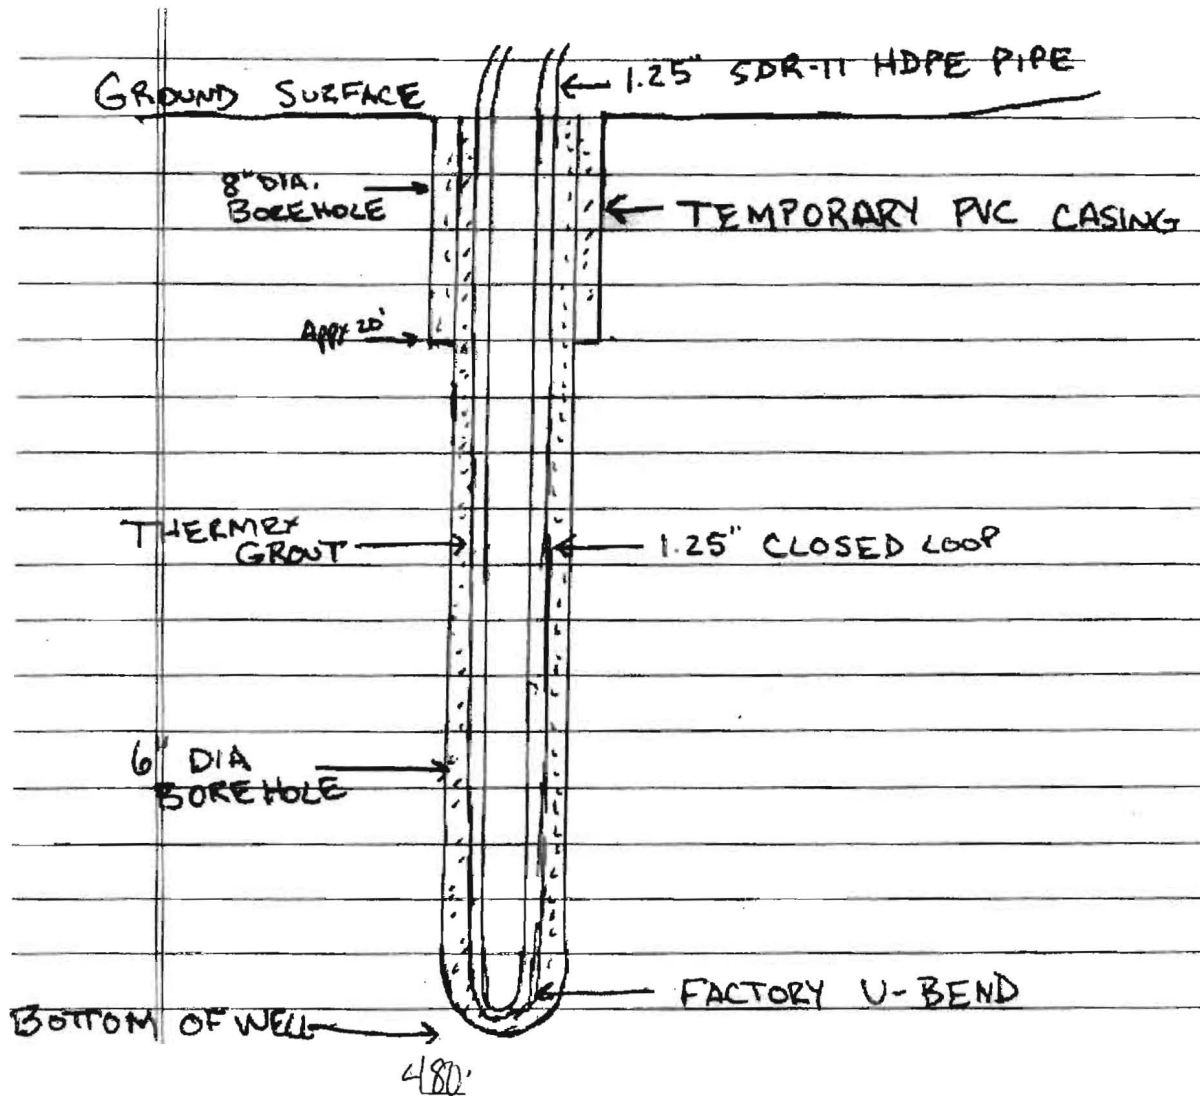 1.25" SDR-11 HDPE PIPE
GROUND SURFACE
8" DIA.
BOREHOLE
TEMPORARY PVC CASING
Appx 20'
THERMEX
GROUT
1.25" CLOSED LOOP
6" DIA
BOREHOLE
FACTORY U-BEND
BOTTOM OF WELL
480'